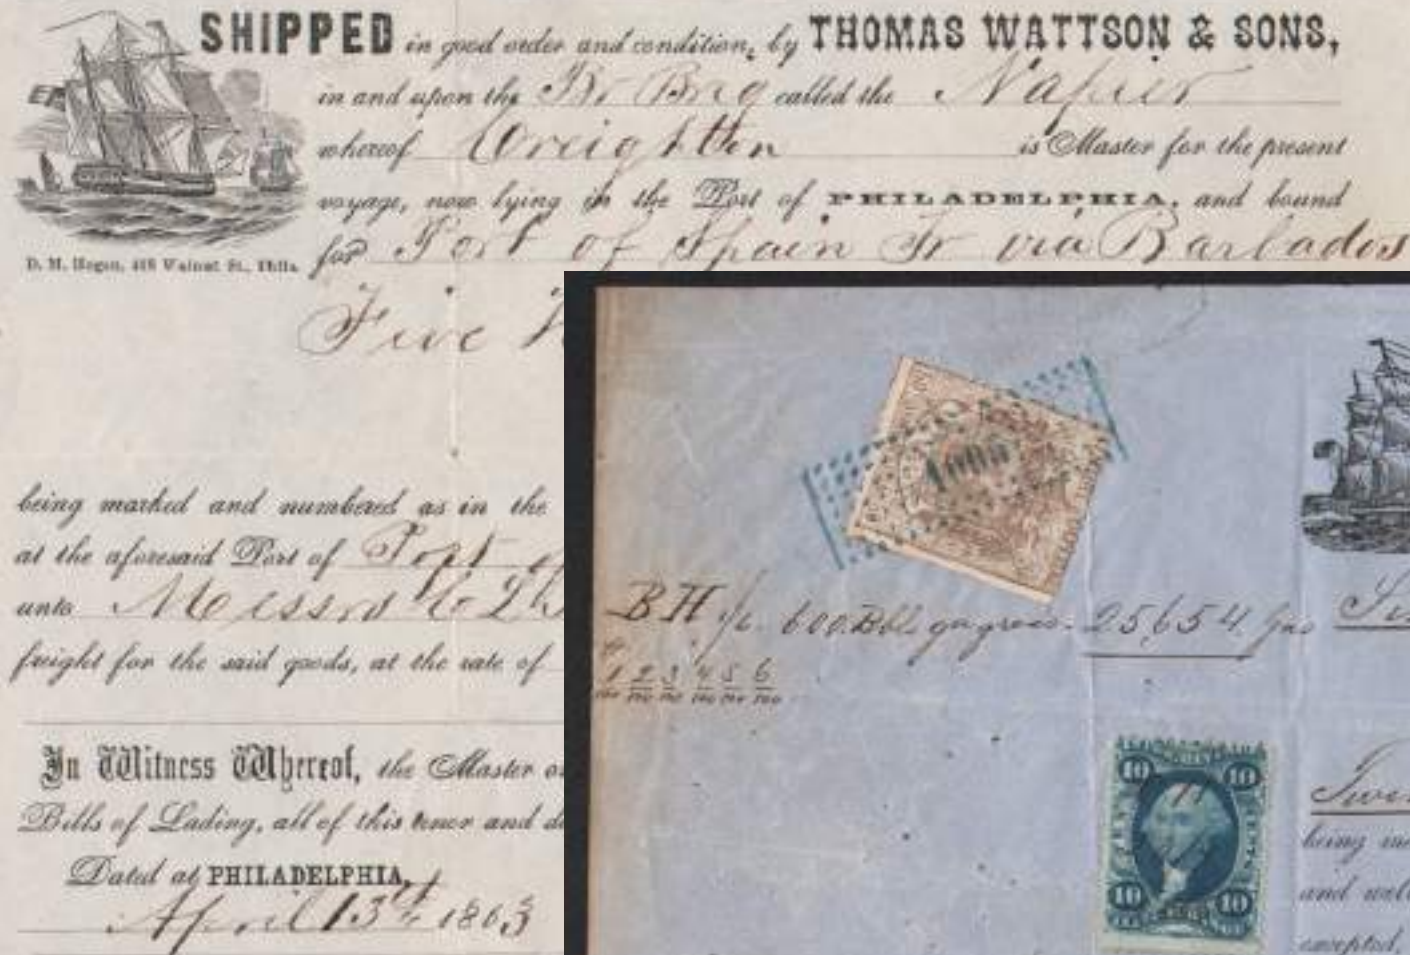 SHIPPED in good order and condition, by THOMAS WATTSON & SONS,
in and upon the Br Brig called the Napier
whereof Creighton is Master for the present
voyage, now lying in the Port of PHILADELPHIA, and bound
D. M. Hogan, 418 Walnut St., Phila.
for Port of Spain Tr via Barbados
Five
being marked and numbered as in the
at the aforesaid Port of Port
unto Messrs
freight for the said goods, at the rate of
In Witness Whereof, the Master
Bills of Lading, all of this tenor and
Dated at PHILADELPHIA,
April 13th 1863
BH 600 Bbl gross 25654
1 2 3 4 5 6
100 100 100 100 100 100
10 10
10 10
being
and
excepted,